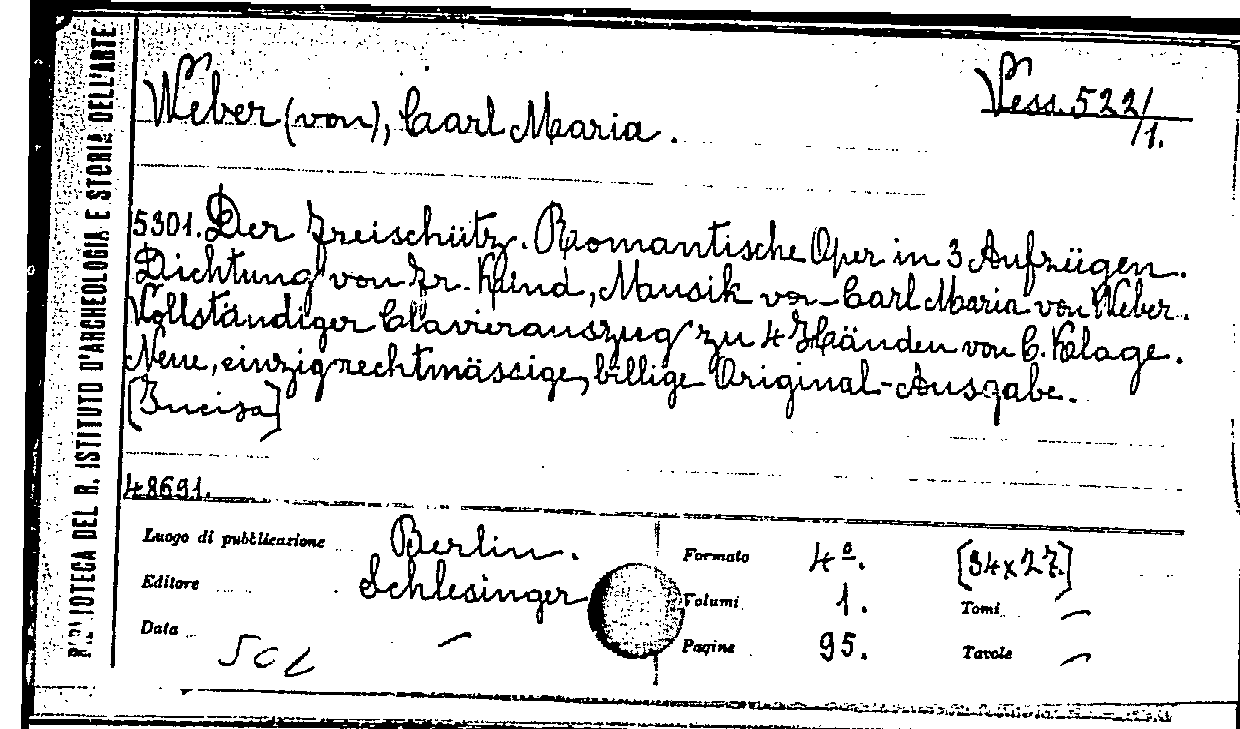 BIBLIOTECA DEL R. ISTITUTO D'ARCHEOLOGIA E STORIA DELL'ARTE
Weber (von), Carl Maria.
Vess. 522/1.
5301. Der Freischütz. Romantische Oper in 3 Aufzügen.
Dichtung von Fr. Kind, Musik von Carl Maria von Weber.
Vollständiger Clavierauszug zu 4 Händen von C. Klage.
Neue, einzig rechtmässige, billige Original-Ausgabe.
[Incisa]
48691.
Luogo di pubblicazione Berlin.
Editore Schlesinger
Data –
Formato 4º. [34x27.]
Volumi 1. Tomi –
Pagine 95. Tavole –